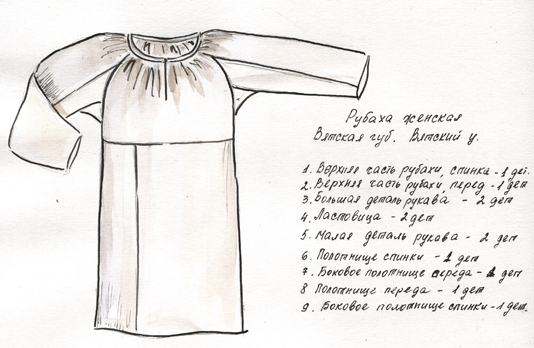 Рубаха женская
Вятская губ. Вятский у.
1. Верхняя часть рубахи, спинка - 1 дет.
2. Верхняя часть рубахи, перед - 1 дет
3. Большая деталь рукава - 2 дет
4. Ластовица - 2 дет
5. Малая деталь рукава - 2 дет
6. Полотнище спинки - 1 дет
7. Боковое полотнище переда - 1 дет
8 Полотнище переда - 1 дет
9. Боковое полотнище спинки - 1 дет.